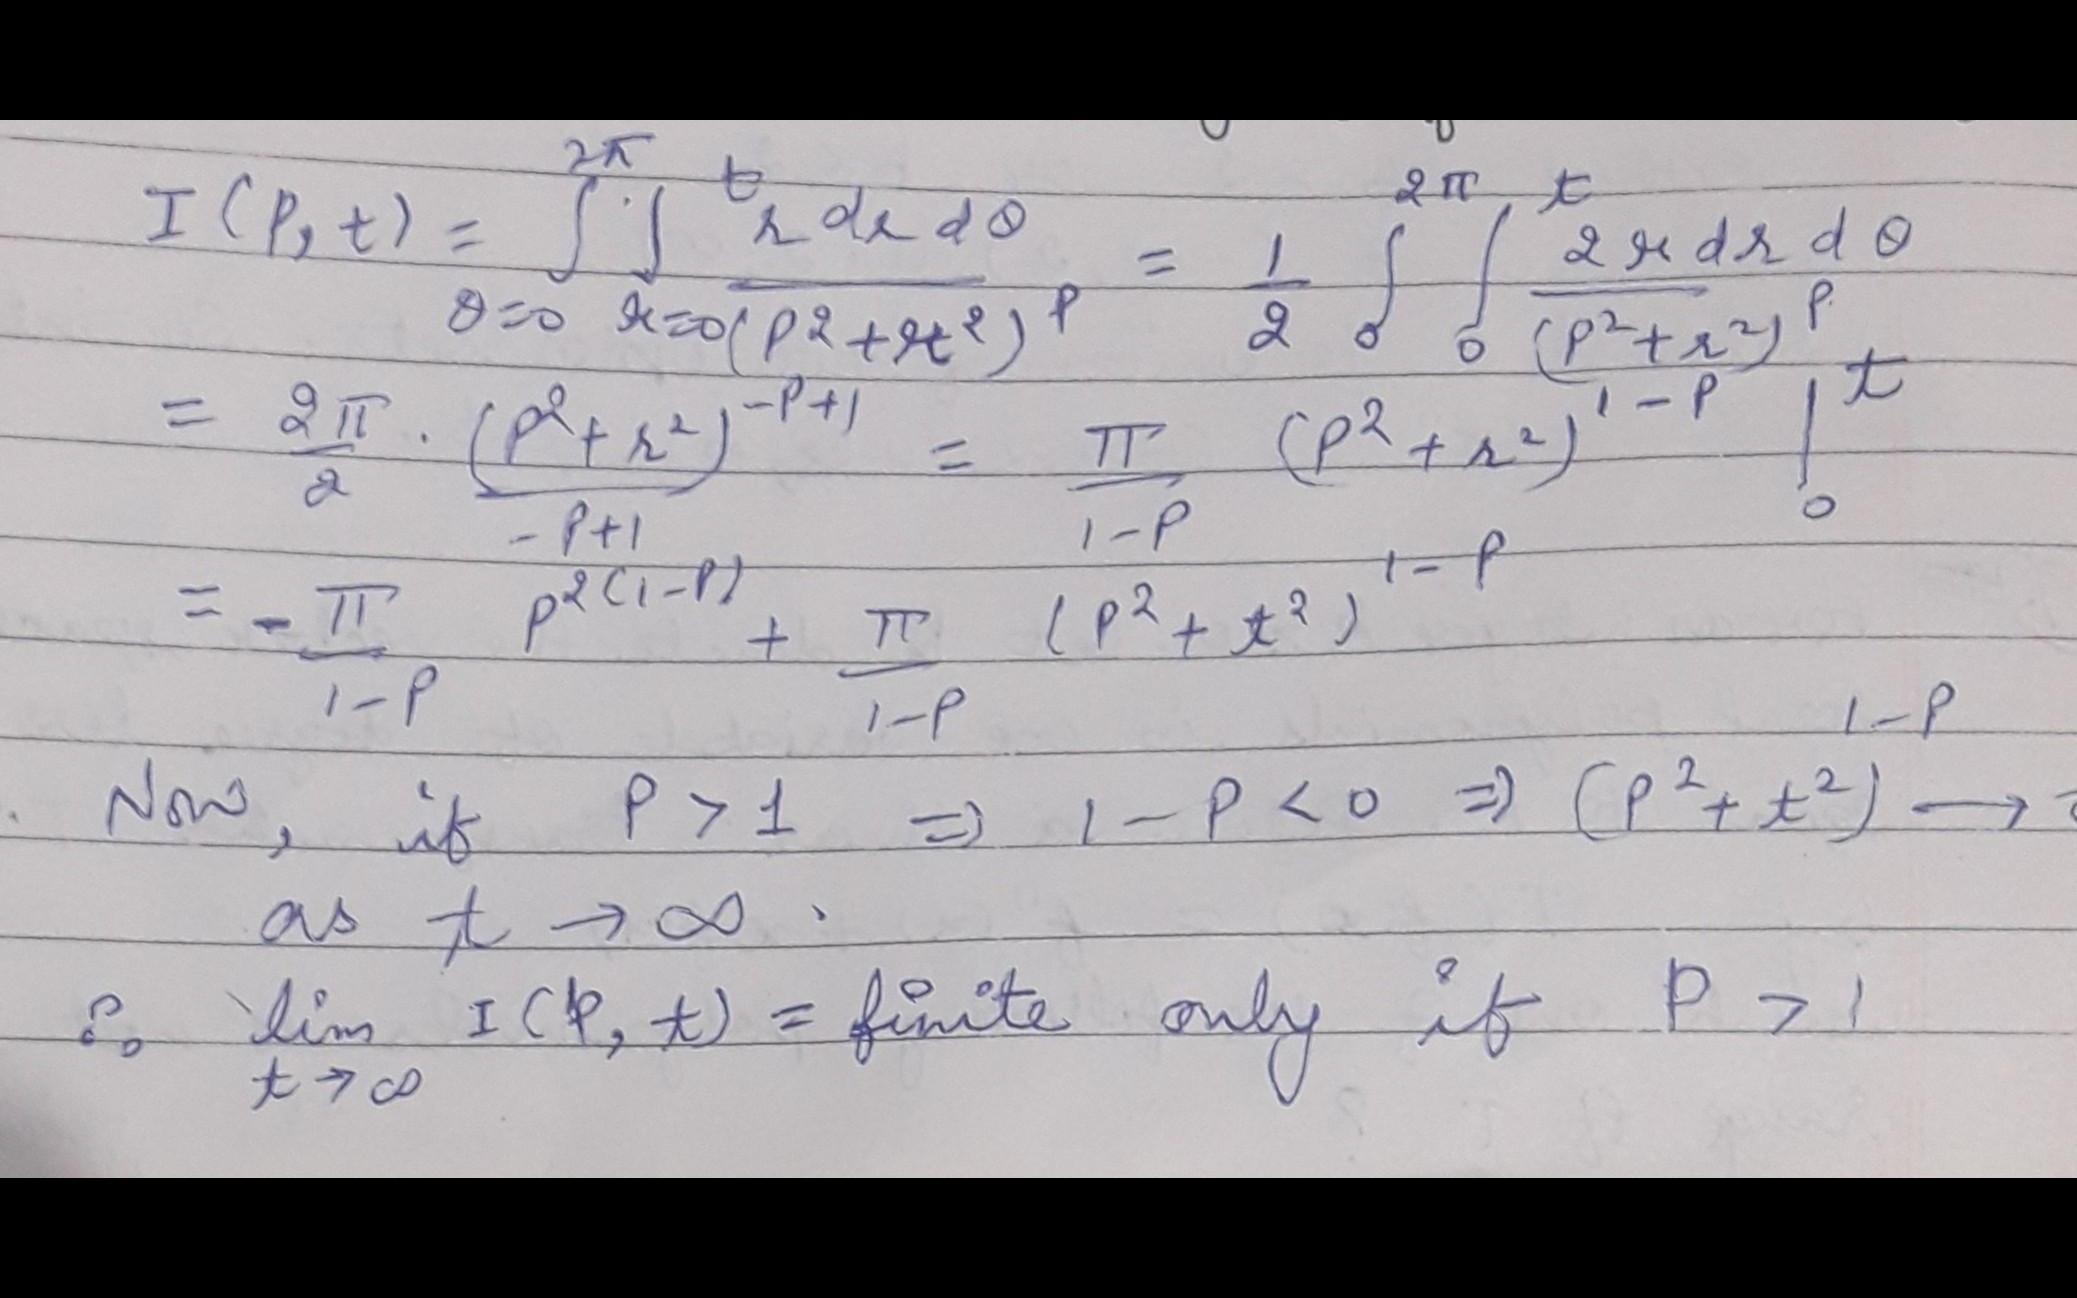 I(P, t) = ∫_{θ=0}^{2π} ∫_{r=0}^{t} r dr dθ / (P² + r²)^P = 1/2 ∫_0^{2π} ∫_0^t 2r dr dθ / (P² + r²)^P
= 2π/2 · (P² + r²)^{-P+1} / (-P+1) = π/(1-P) (P² + r²)^{1-P} |_0^t
= - π/(1-P) P^{2(1-P)} + π/(1-P) (P² + t²)^{1-P}
Now, if P > 1 ⇒ 1-P < 0 ⇒ (P² + t²)^{1-P} →
as t → ∞ .
∴ lim_{t→∞} I(P, t) = finite only if P > 1